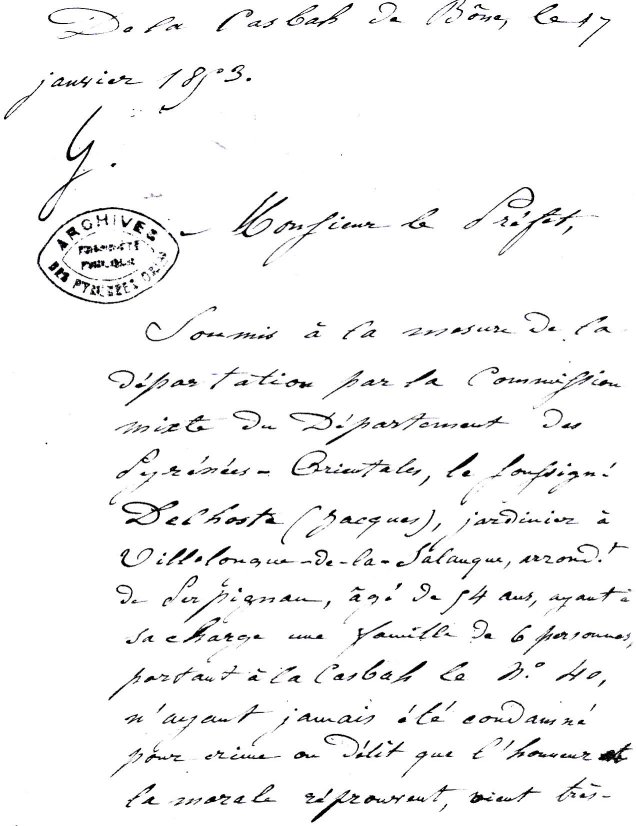 De la Casbah de Bône, le 17
janvier 1853.
G.
ARCHIVES
PROPRIÉTÉ
PUBLIQUE
DES PYRENEES OR.
Monsieur le Préfet,
Soumis à la mesure de la
déportation par la Commission
mixte du Département des
Pyrénées-Orientales, le soussigné
Delhoste (Jacques), jardinier à
Villelongue-de-la-Salanque, arrond.t
de Perpignan, âgé de 54 ans, ayant à
sa charge une famille de 6 personnes,
portant à la Casbah le N.o 40,
n'ayant jamais été condamné
pour crime ou délit que l'honneur et
la morale réprouvent, vient très-